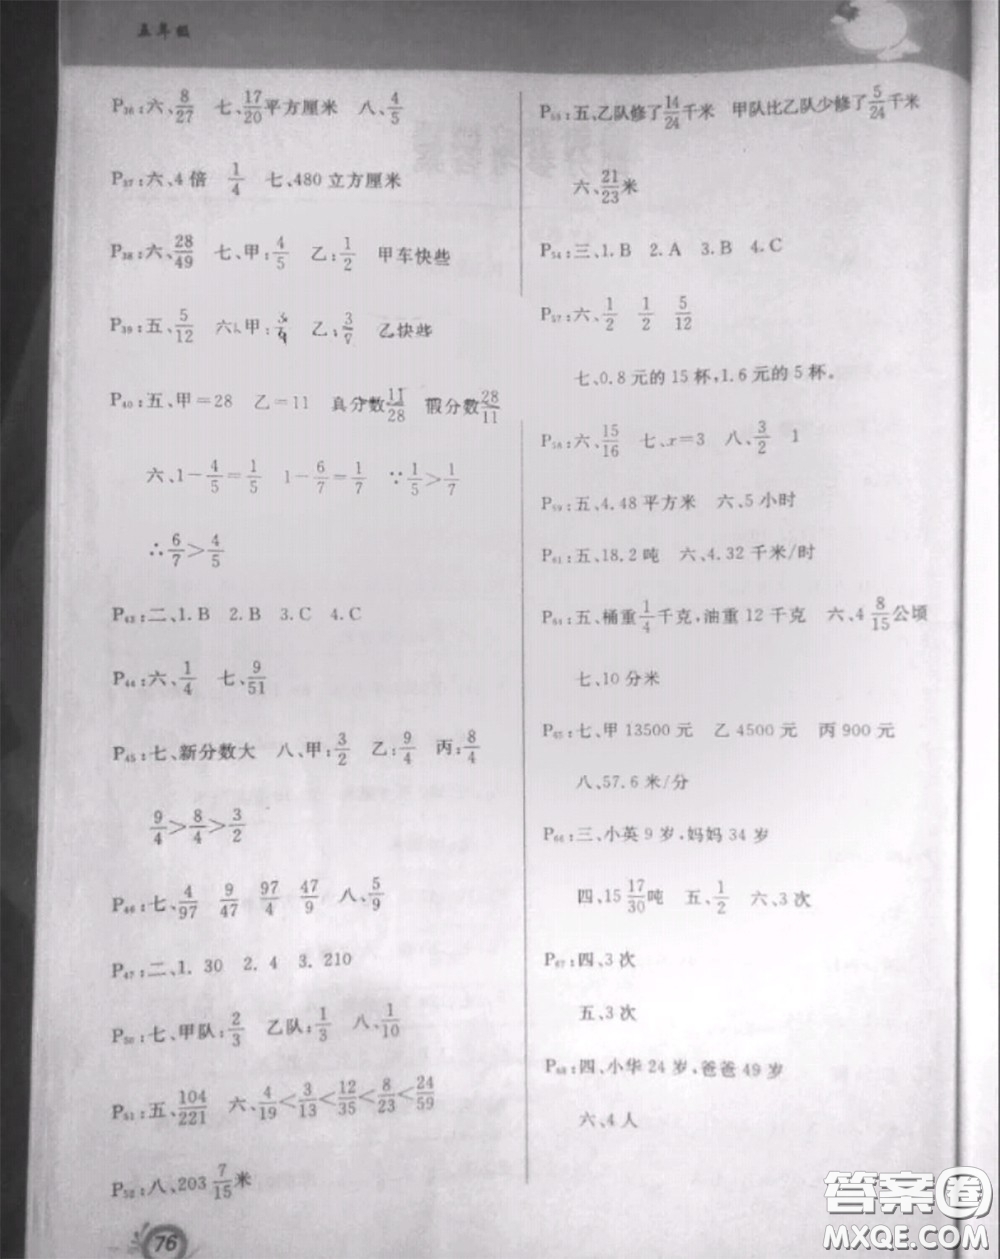 五年级
P36:六、8/27 七、17/20平方厘米 八、4/5
P37:六、4倍 1/4 七、480立方厘米
P38:六、28/49 七、甲:4/5 乙:1/2 甲车快些
P39:五、5/12 六、甲: 乙: 乙快些
P40:五、甲=28 乙=11 真分数11/28 假分数28/11
六、1-4/5=1/5 1-6/7=1/7 ∵1/5>1/7
∴6/7>4/5
P43:二、1.B 2.B 3.C 4.C
P44:六、1/4 七、9/51
P45:七、新分数大 八、甲:3/2 乙:9/4 丙:8/4
9/4>8/4>3/2
P46:七、4/97 9/47 97/4 47/9 八、5/9
P47:二、1. 30 2. 4 3. 210
P50:七、甲队:2/3 乙队:1/3 八、1/10
P51:五、104/221 六、4/19<3/13<12/35<8/23<24/59
P52:八、203 7/15米
76
P53:五、乙队修了14/24千米 甲队比乙队少修了5/24千米
六、21/23米
P54:三、1.B 2.A 3.B 4.C
P57:六、1/2 1/2 5/12
七、0.8元的15杯,1.6元的5杯。
P58:六、15/16 七、x=3 八、3/2 1
P59:五、4.48平方米 六、5小时
P61:五、18.2吨 六、4.32千米/时
P64:五、桶重1/4千克,油重12千克 六、4 8/15公顷
七、10分米
P65:七、甲13500元 乙4500元 丙900元
八、57.6米/分
P66:三、小英9岁,妈妈34岁
四、15 17/30吨 五、1/2 六、3次
P67:四、3次
五、3次
P68:四、小华24岁,爸爸49岁
六、4人
答案圈
MXQE.COM